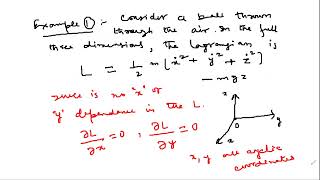 Example ① :- Consider a ball thrown
through the air. In the full
three dimensions, the Lagrangian is
L = 1/2 m [ẋ² + ẏ² + ż²]
- mgz
There is no 'x' or
'y' dependence in the L.
∂L/∂x = 0 , ∂L/∂y = 0
z
0
y
x
x, y are cyclic
coordinates